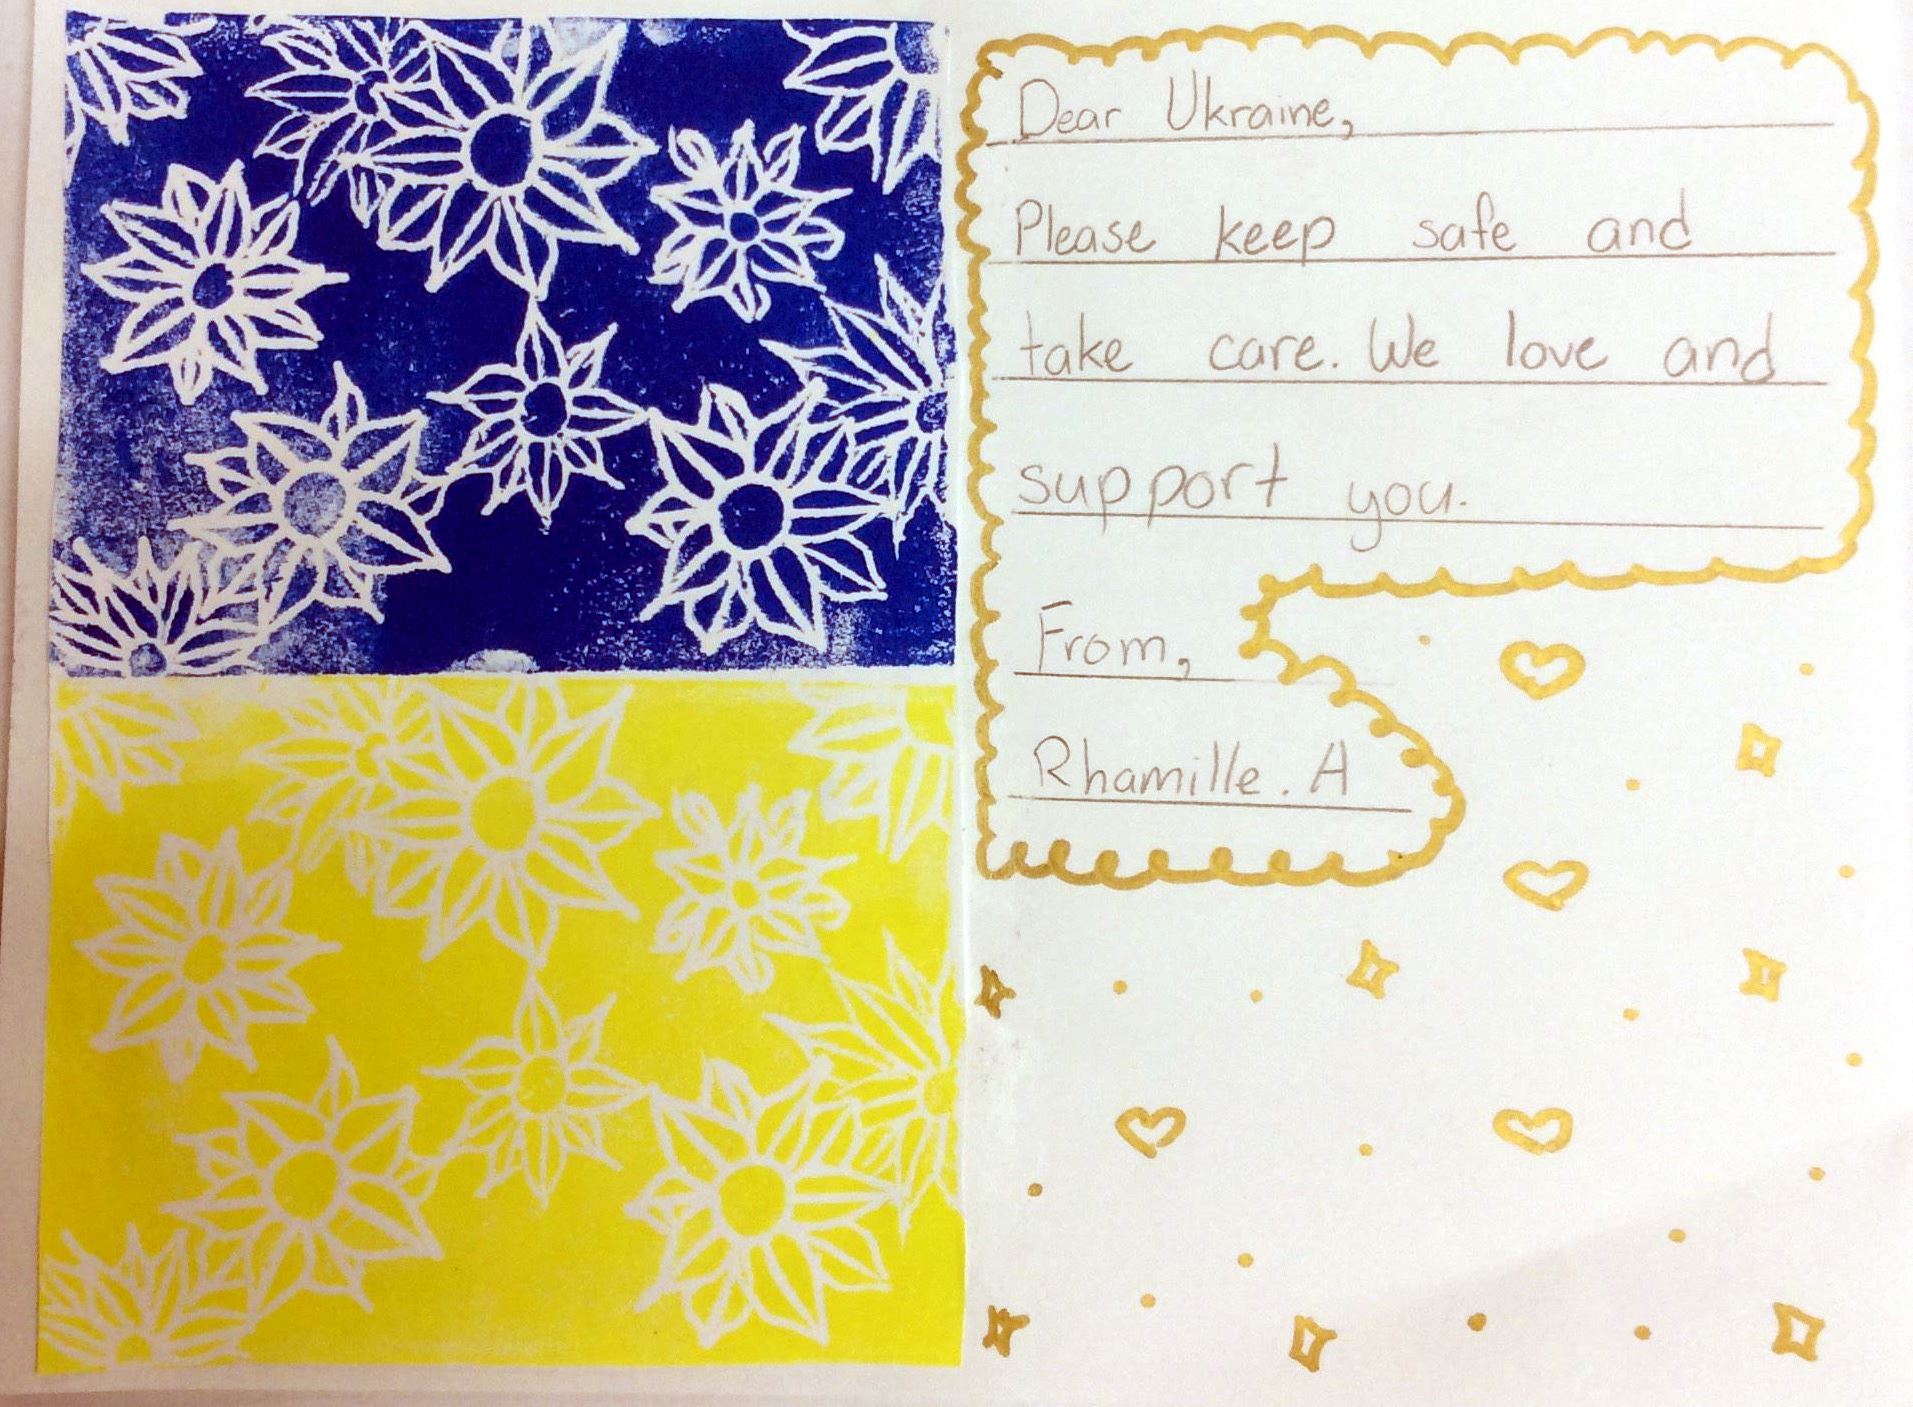 Dear Ukraine,
Please keep safe and
take care. We love and
support you.
From,
Rhamille. A